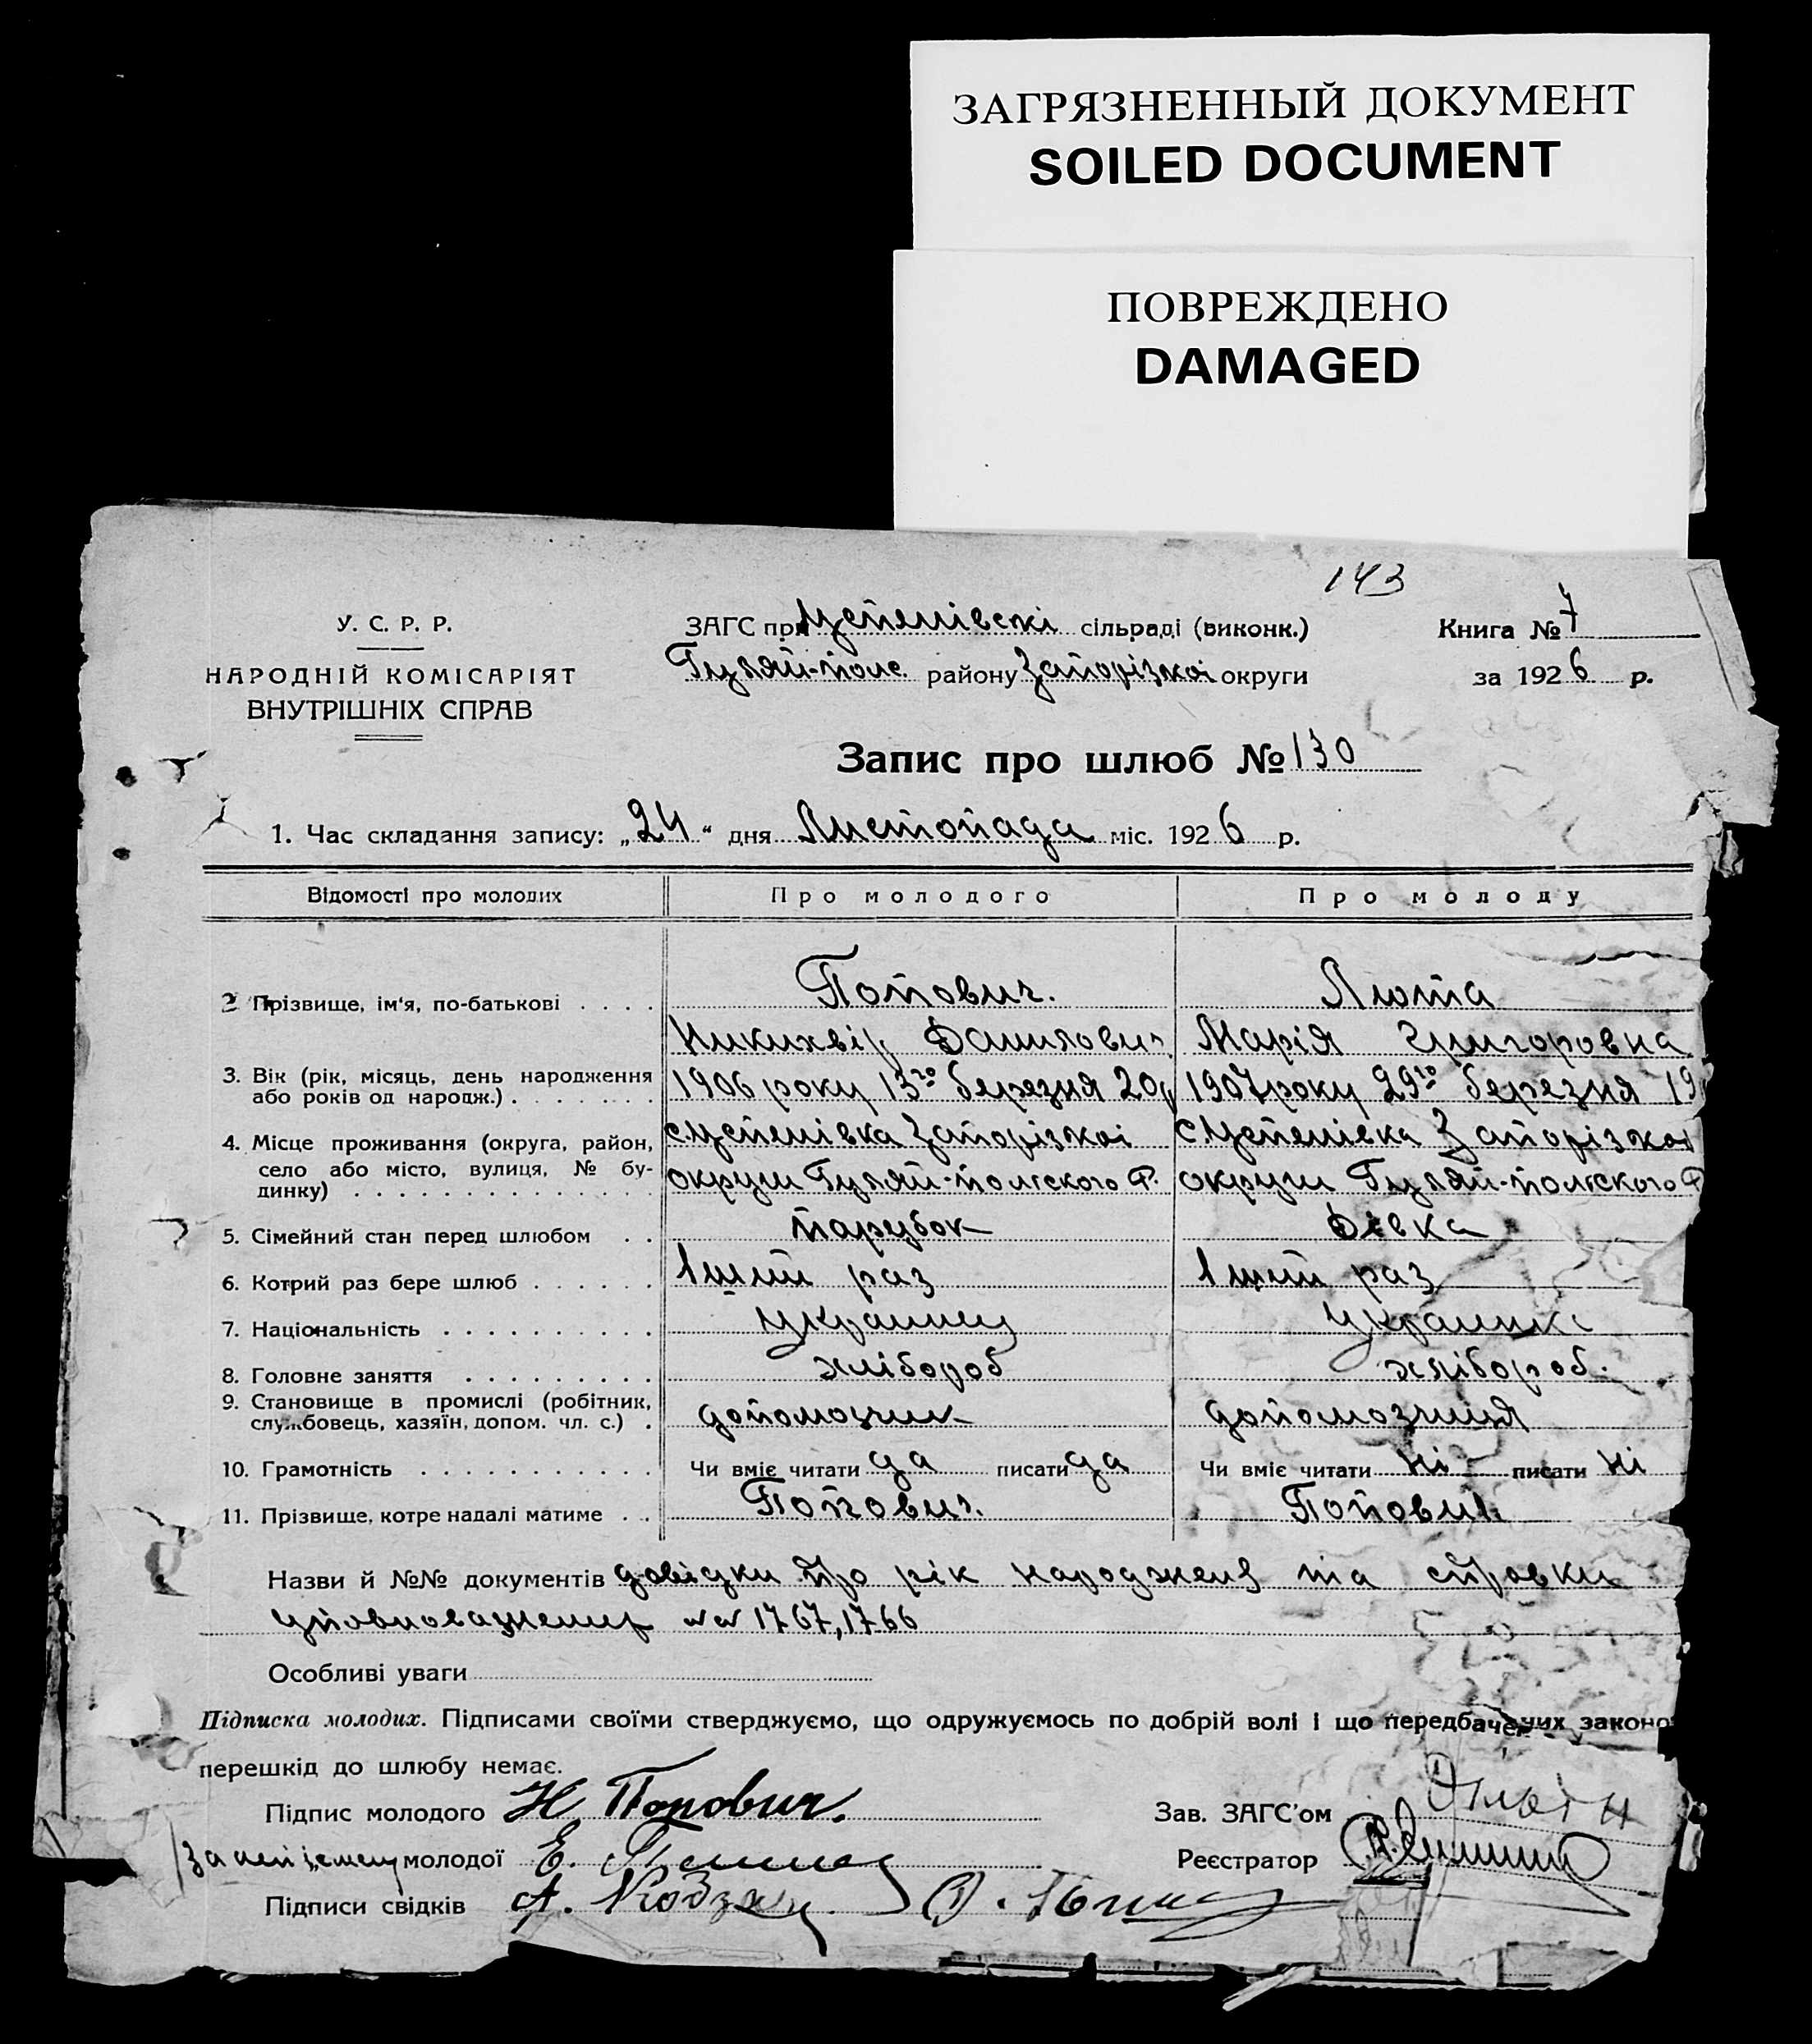 ЗАГРЯЗНЕННЫЙ ДОКУМЕНТ
SOILED DOCUMENT
ПОВРЕЖДЕНО
DAMAGED
143
У. С. Р. Р.
НАРОДНІЙ КОМІСАРІЯТ
ВНУТРІШНІХ СПРАВ
ЗАГС при Успенівскі сільраді (виконк.)
Гуляй-Полс. району Запорізкоі округи
Книга № 7
за 1926 р.
Запис про шлюб № 130
1. Час складання запису: „24“ дня Листопада міс. 1926 р.
Відомості про молодих Про молодого Про молоду
2 Прізвище, ім'я, по-батькові . . . . Попович. Люта
Никихвір Данилович Марія Григоровна
3. Вік (рік, місяць, день народження або років од народж.) . . . . . . . 1906 року 13го березня 20р 1907 року 29го березня 19
4. Місце проживання (округа, район, с. Успенівка Запорізкоі с. Успенівка Запорізкоі
село або місто, вулиця, № бу-динку) . . . . . . . . . . . . . . . округи Гуляй-Польского Р. округи Гуляй-Польского Р
5. Сімейний стан перед шлюбом . . парубок дівка
6. Котрий раз бере шлюб . . . . . . 1ший раз 1ший раз
7. Національність . . . . . . . . . . украинец украинка
8. Головне заняття . . . . . . . . . хлібороб хлібороб.
9. Становище в промислі (робітник, службовець, хазяїн, допом. чл. с.) . допомозчик допомозчиця
10. Грамотність . . . . . . . . . . . Чи вміє читати да писати да Чи вміє читати ні писати ні
11. Прізвище, котре надалі матиме . . . Попович. Попович
Назви й №№ документів довідки про рік народженя та справки
уповноваженого №№ 1767, 1766
Особливі уваги
Підписка молодих. Підписами своїми стверджуємо, що одружуємось по добрій волі і що передбачених законо
перешкід до шлюбу немає.
Підпис молодого Н Попович.
Зав. ЗАГС'ом
молодої Е.
Реєстратор
Підписи свідків А.